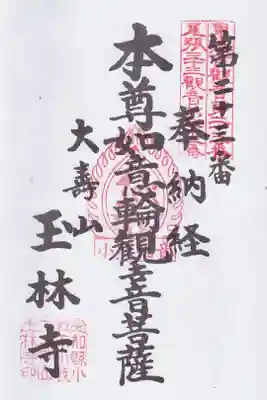 第二十三番
奉納経
本尊如意輪觀音菩薩
大寿山
玉林寺
尾張三十三觀音